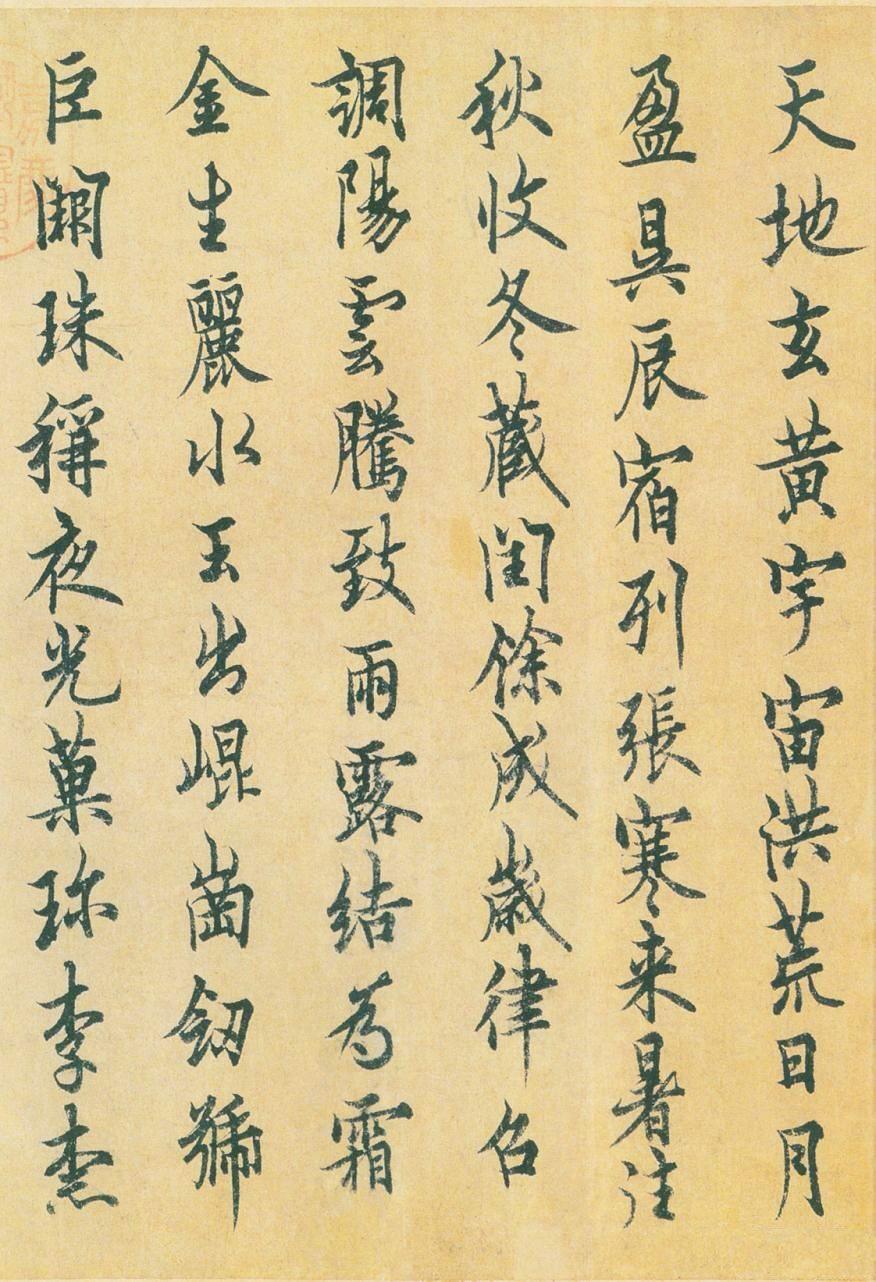 天地玄黄宇宙洪荒日月
盈昃辰宿列張寒来暑往
秋收冬蔵閏餘成歲律召
調陽雲騰致雨露結為霜
金生麗水玉出崐崗劒號
巨闕珠稱夜光菓珎李柰